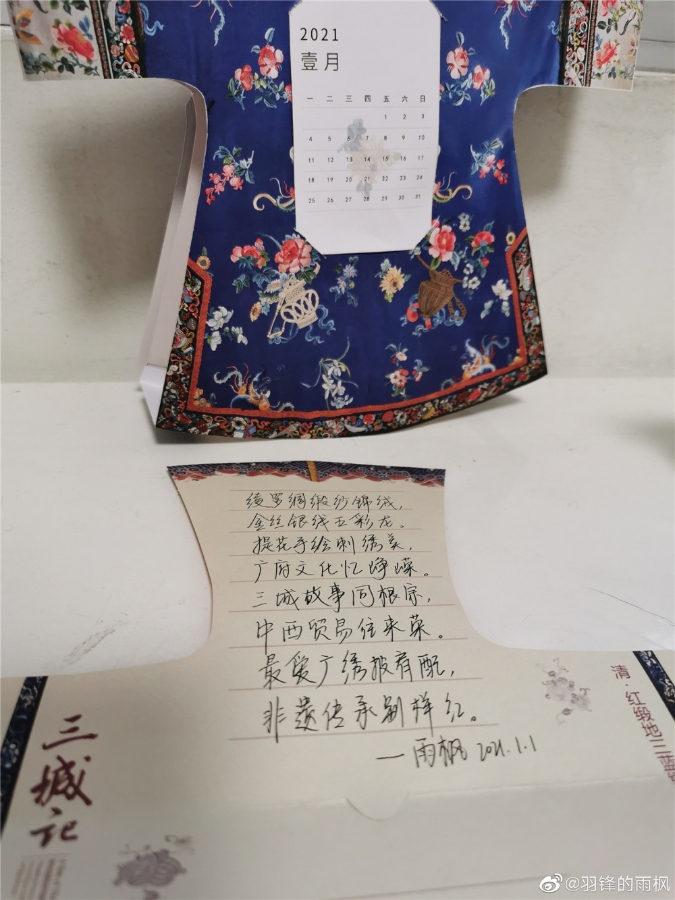 2021
壹月
一 二 三 四 五 六 日
1 2 3
4 5 6 7 8 9 10
11 12 13 14 15 16 17
18 19 20 21 22 23 24
25 26 27 28 29 30 31
绫罗绸缎纱锦绒,
金丝银线五彩龙。
提花手绘刺绣美,
广府文化忆峥嵘。
三城故事同根宗,
中西贸易往来荣。
最爱广绣披肩配,
非遗传承别样红。
—雨枫 2021.1.1
三城记
清·红缎地三蓝
@羽锋的雨枫